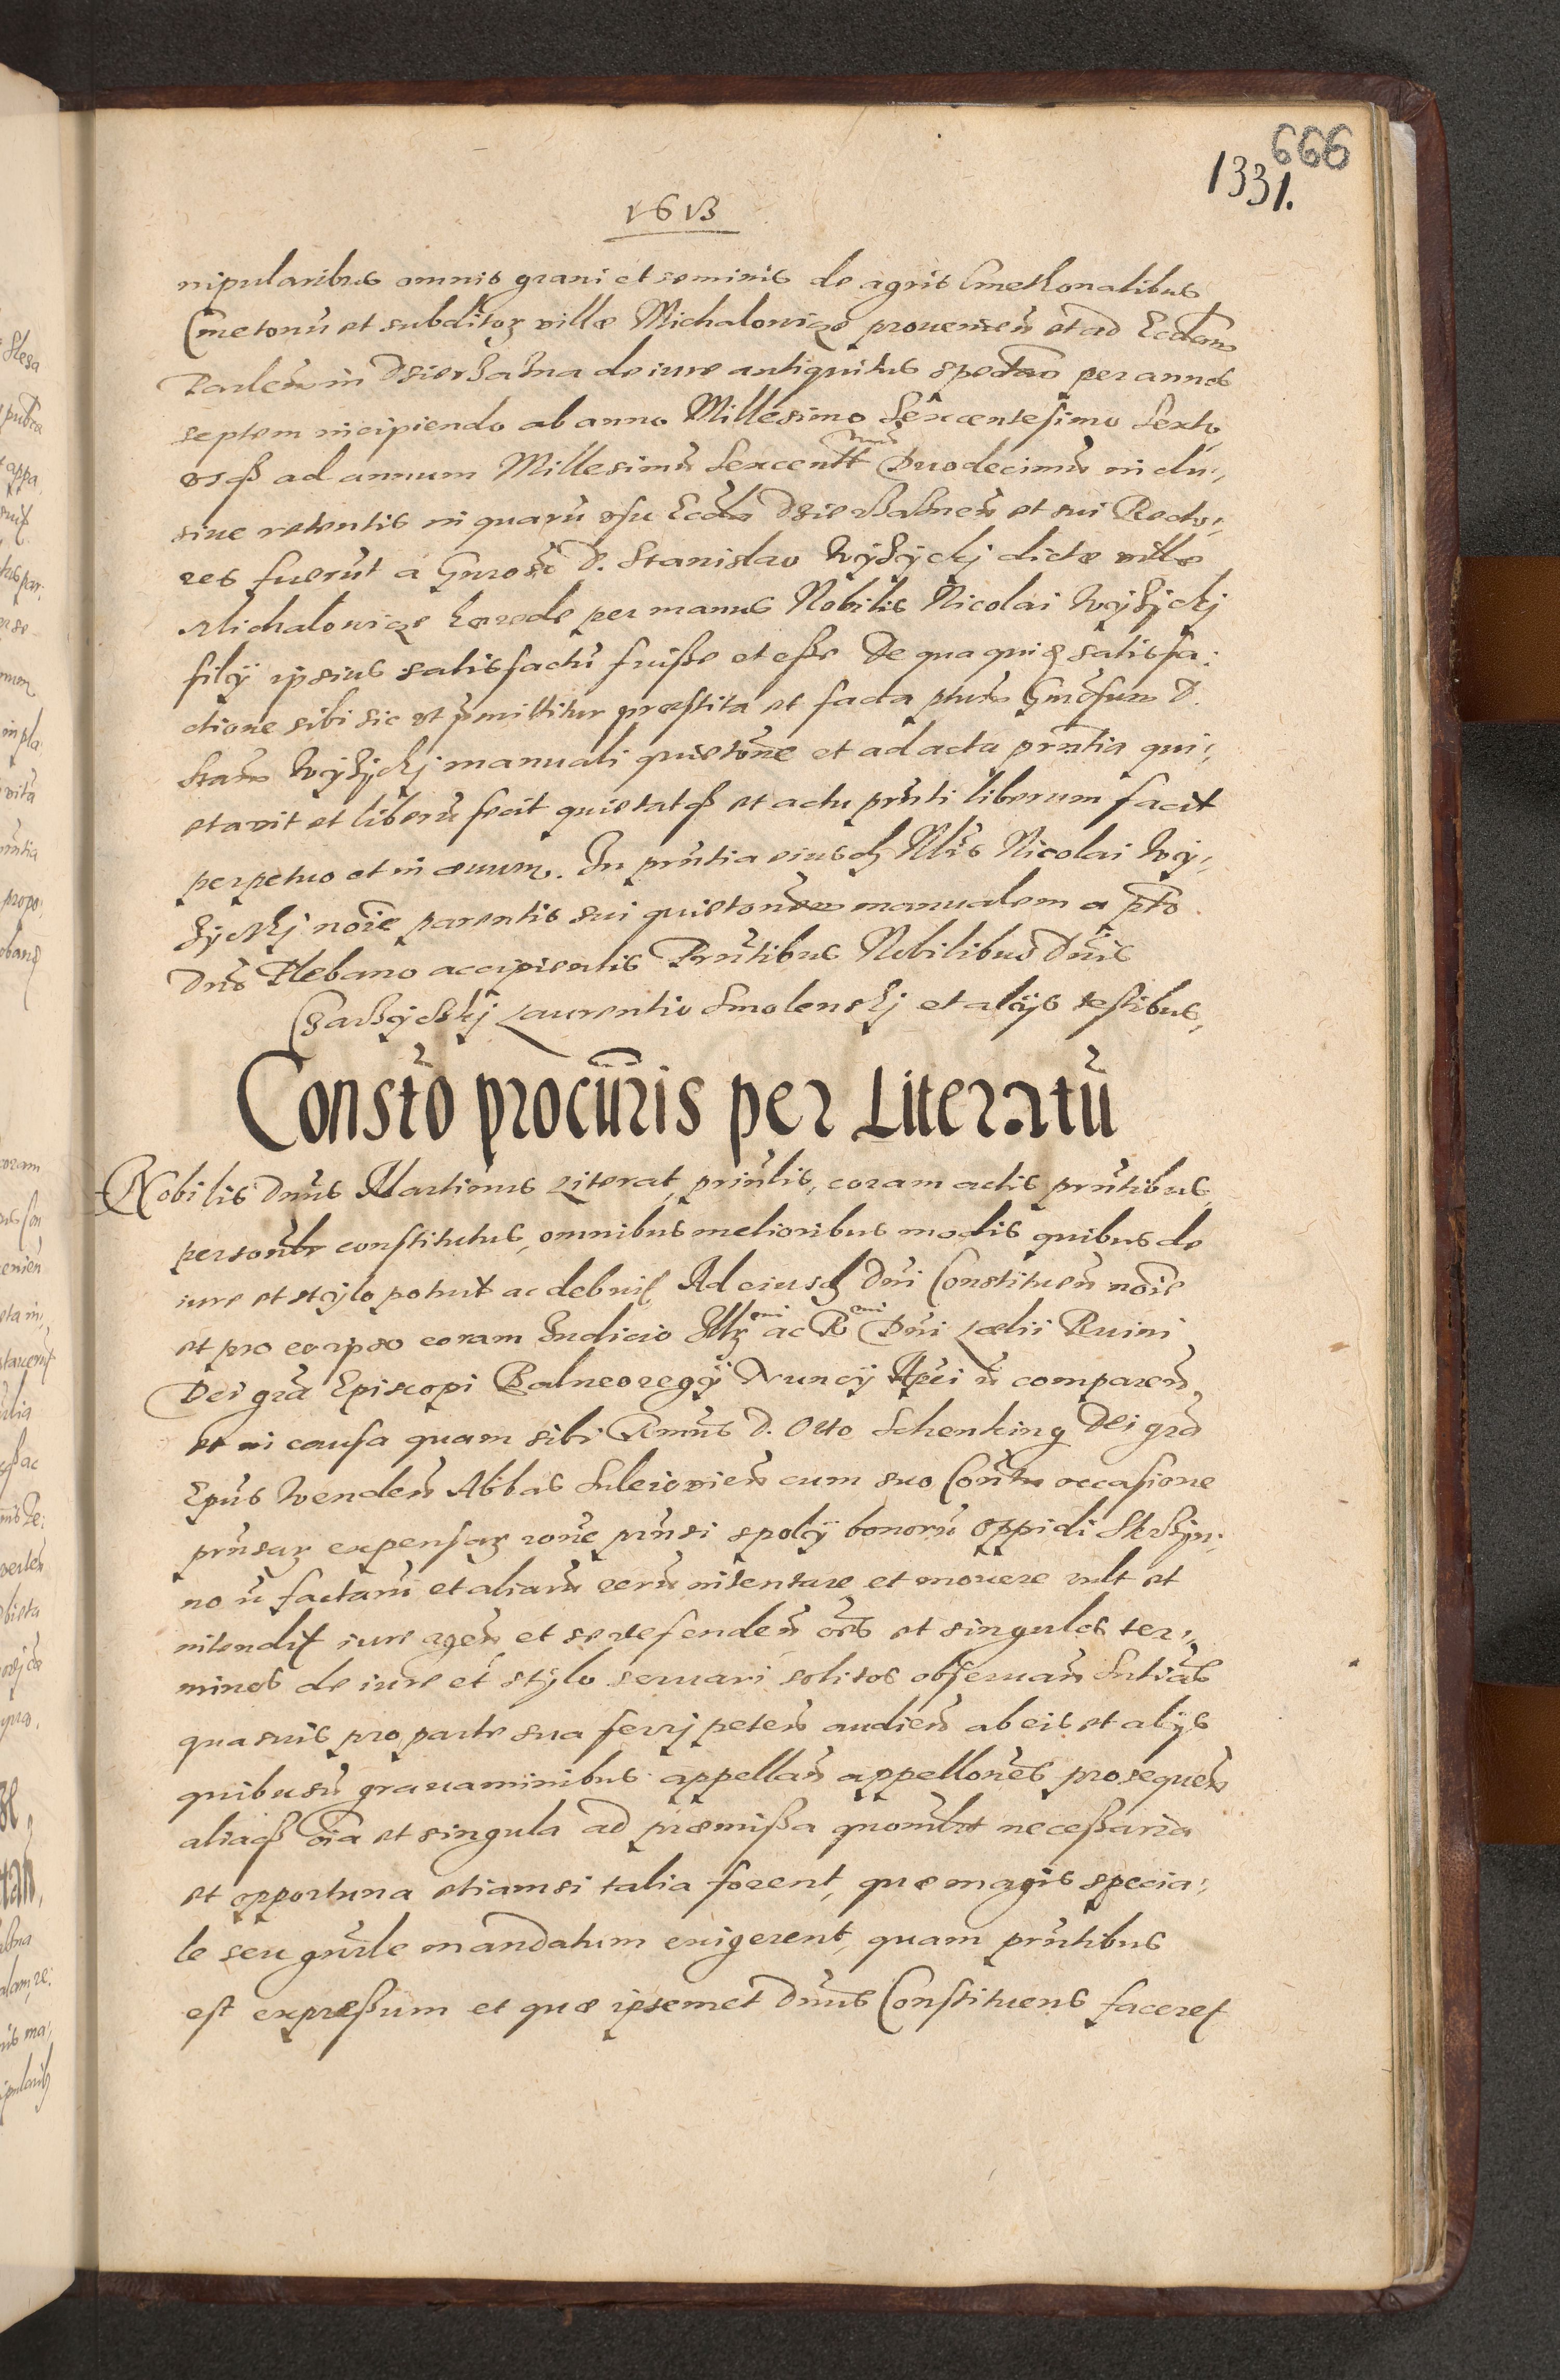 666
1331.
1613
nipularibus omnis grani et seminis de agris Cmethonalibus
Cmetonũ et subditoꝝ villæ Michalowicze prouenieñ et ad Eccłam
Parleñ in Dzierżażna de iure antiquitus spectañ per annos
septem incipiendo ab anno Millesimo Sexcentesimo Sexto
vsqꝫ ad annum Millesimũ Sexcentt mũ Duodecimũ inclu,
siue retentis in quarũ vsu Eccła Dzierżażneñ et sui Recto,
res fuerũt a Gnroso D. Stanislao Wyżycky dictæ villæ
Michalowicze hærede per manus Nobilis Nicolai Wyżycky
filÿ ipsius satisfactũ fuiße et eße De qua quidẽ satisfa:
ctione sibi sic vt p̃mittitur præstita et facta ptum Gñrosum D.
Stañ Wyżycky manuali quiet̃one et ad acta prñtia qui,
etauit et liberũ fecit quietatqꝫ et actu prñti liberum facit
perpetuo et in æuum. In prñtia eiusdẽ Nblis Nicolai Wy,
życky nõie parentis sui quiet̃onem manualem a pto
Dño Plebano accipientis Prñtibus Nobilibus Dñis
Laurentio Smolensky et alijs testibus,
Const̃o procũris per Literatũ
Nobilis Dñus Martinus Literat, prin̄lis, coram actis prñtibus
personlr constitutus, omnibus melioribus modis quibus de
iure et stylo potuit ac debuit Ad eiusdẽ Dñi Constitueñ nõie
et pro eo ipso coram Iudicio Illꝝ mi ac R mi Dñi Lælii Ruini
Dei grã Episcopi Balneoregÿ Nuncÿ Apci ñ compareñ
et in causa quam sibi Rmũs D. Otto Schenking Dei grã
Ep̃us Wendeñ Abbas Suleiowieñ cum suo Con̄tu occasione
expensaꝝ rõne spolÿ bonorũ oppidi
no ñ factarũ et aliarũ rerũ intentare et mouere vult et
intendit iure ageñ et se defendeñ oẽs et singulos ter,
minos de iure et stylo seruari solitos obseruañ Sntiãs
quasuis pro parte sua ferrj peteñ audieñ ab eis et alÿs
quibusũ grauaminibus appellañ appellõnes prosequeñ
aliaqꝫ õia et singula ad præmißa quomlt neceßaria
et opportuna etiamsi talia forent, quæ magis specia,
le seu gñrle mandatum exigerent, quam prñtibus
est expreßum et quæ ipsemet Dñus Constituens faceret